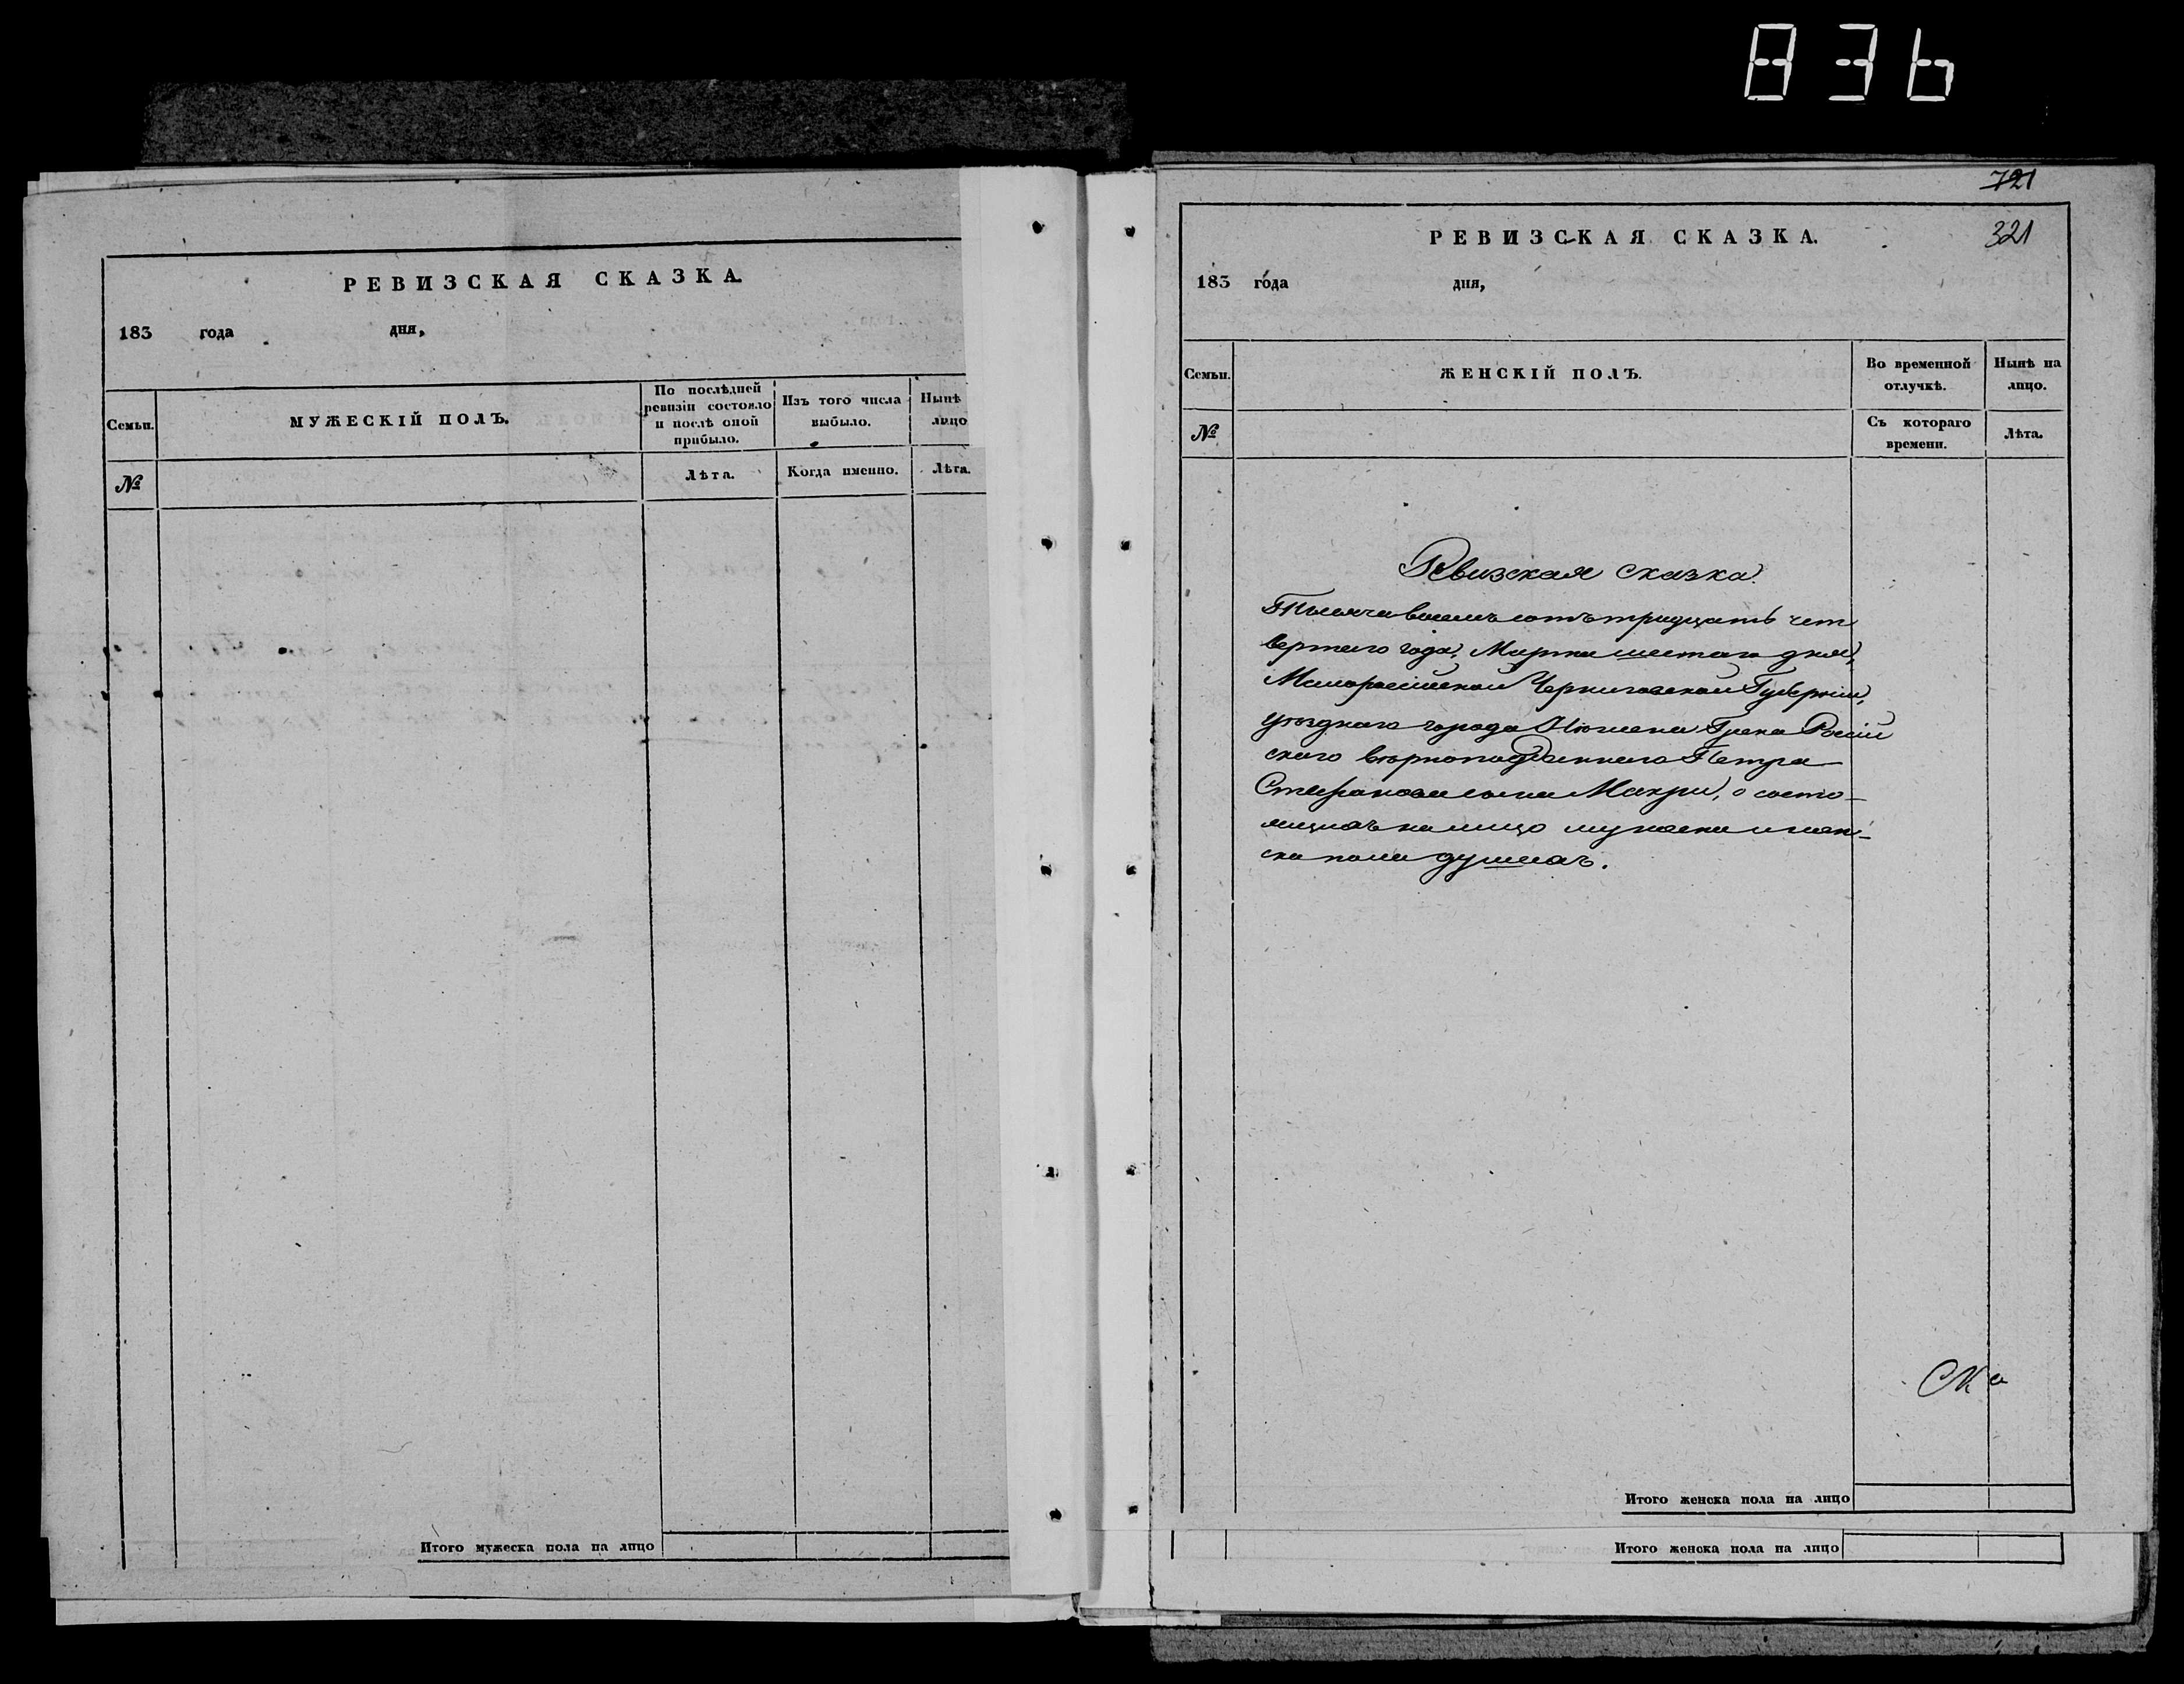 836
РЕВИЗСКАЯ СКАЗКА.
183 года дня,
Семьи.
МУЖЕСКІЙ ПОЛЪ.
По послѣдней
ревизіи состояло
и послѣ оной
прибыло.
Изъ того числа
выбыло.
Нынѣ
лицо
№
Лѣта.
Когда именно.
Лѣта.
Итого мужеска пола на лицо
721
321
РЕВИЗСКАЯ СКАЗКА.
183 года дня,
Семьи.
ЖЕНСКІЙ ПОЛЪ.
Во временной
отлучкѣ.
Нынѣ на
лицо.
№
Съ котораго
времени.
Лѣта.
Ревизская сказка.
Тысяча восемь сотъ тридцать чет
вертаго года, Марта шестаго дня,
Малороссійской Черниговской Губерніи,
уѣзднаго города Нѣжена Грека Россій
скаго вѣрноподданнаго Петра
Стефанова сына Макри, о состо-
ящихъ на лицо мужеска и жен-
ска пола душахъ.
Ска
Итого женска пола на лицо
Итого женска пола на лицо